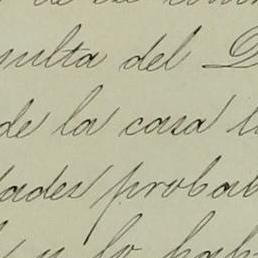 sulta del D
de la casa l
dades probab
y lo hab